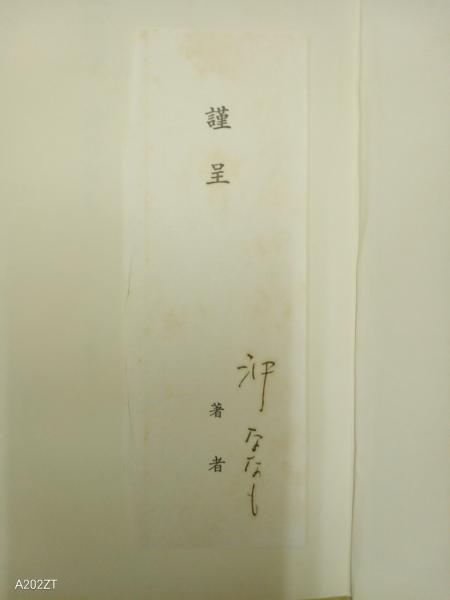 謹呈
沖ななも
著者
A202ZT